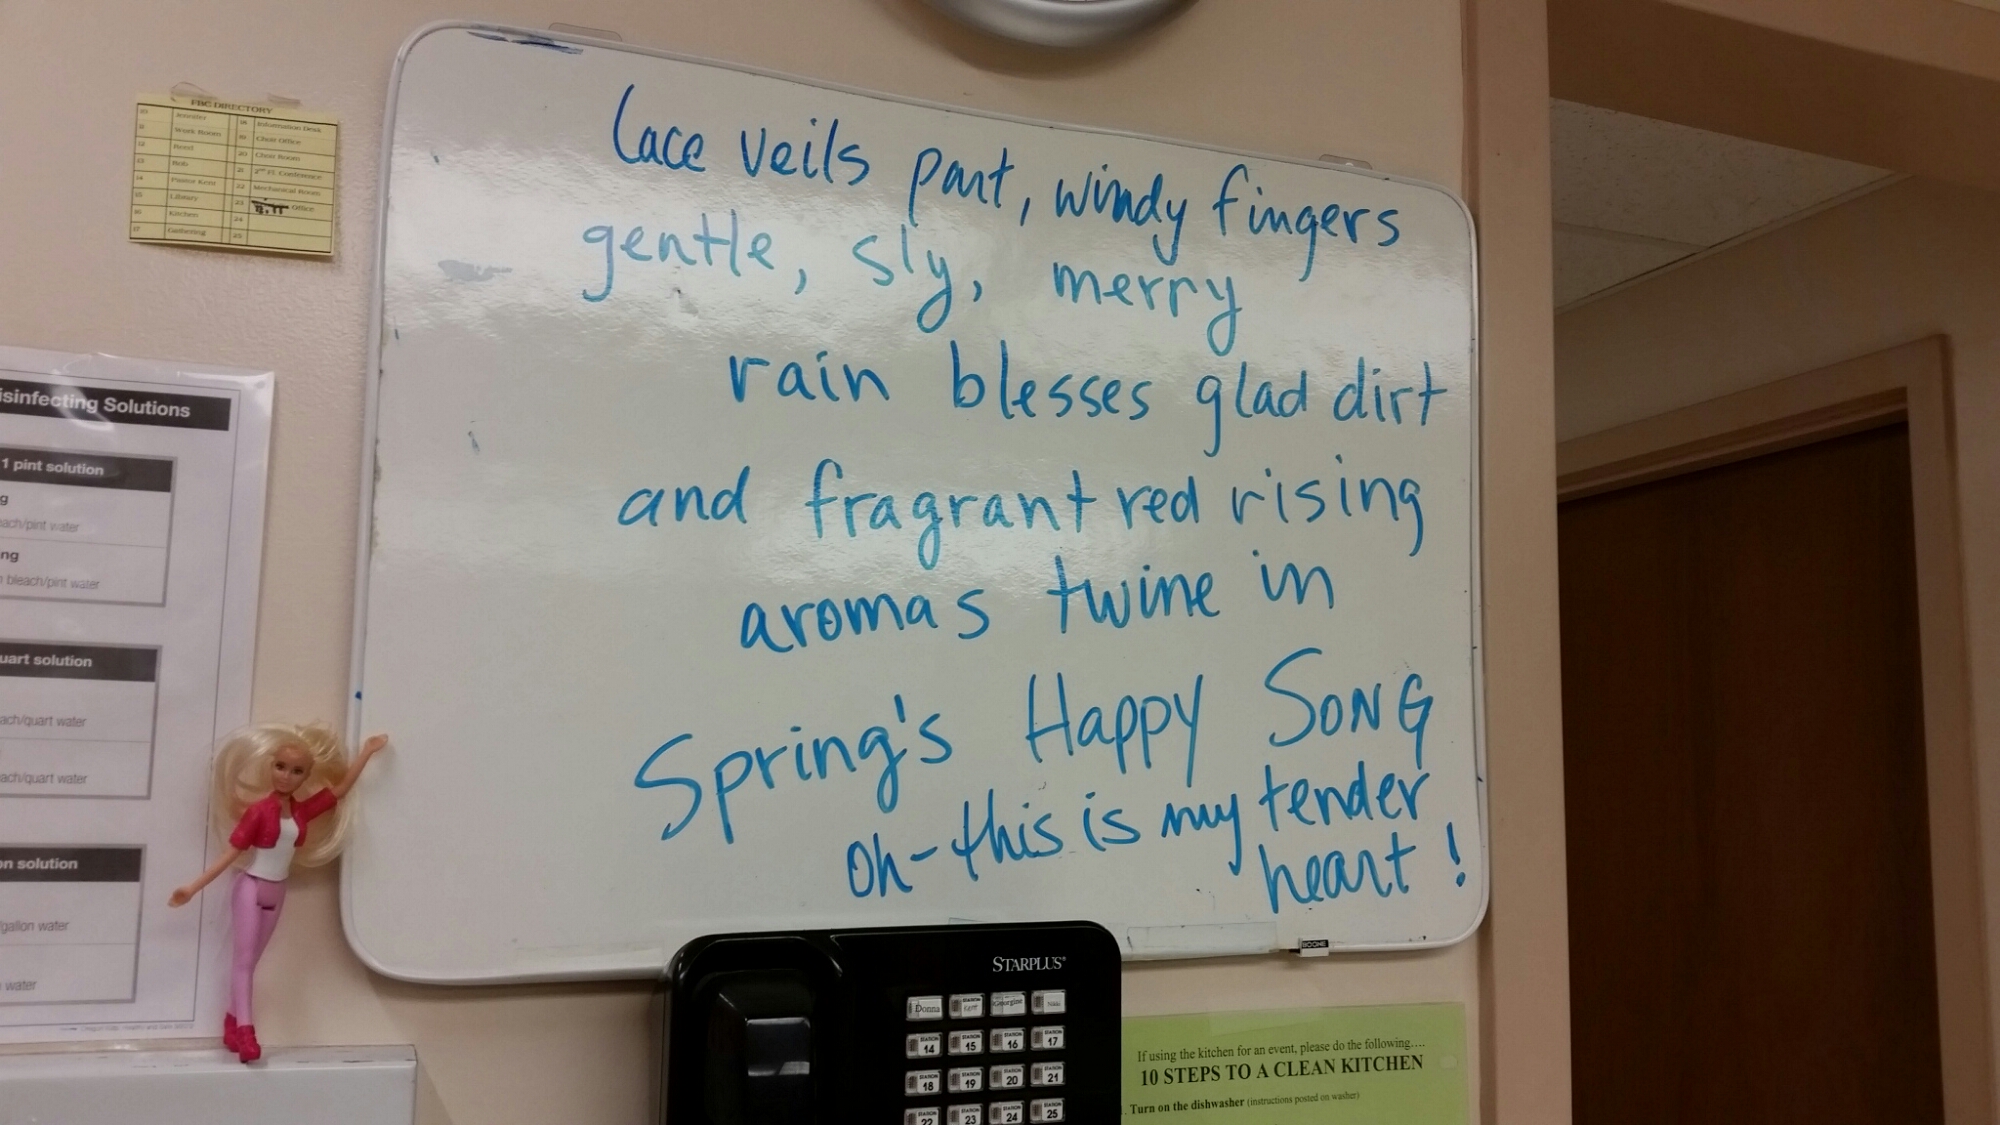 FBC DIRECTORY
10 Jennifer 18 Information Desk
Work Room 19 Choir Office
12 20 Choir Room
13 Bob 21 2nd Fl. Conference
14 Pastor Kent 22 Mechanical Room
15 Library 23 Office
16 Kitchen 24
17 Gathering 25
lace veils part, windy fingers
gentle, sly, merry
rain blesses glad dirt
and fragrant red rising
aromas twine in
Spring's Happy SONG
oh-this is my tender
heart!
isinfecting Solutions
1 pint solution
g
each/pint water
ng
n bleach/pint water
uart solution
ach/quart water
ach/quart water
on solution
/gallon water
water
BOONE
STARPLUS
Donna STATION Georgine
STATION 14 STATION 15 STATION 16 STATION 17
STATION 18 STATION 19 STATION 20 STATION 21
STATION 22 STATION 23 STATION 24 STATION 25
If using the kitchen for an event, please do the following....
10 STEPS TO A CLEAN KITCHEN
Turn on the dishwasher (instructions posted on washer)